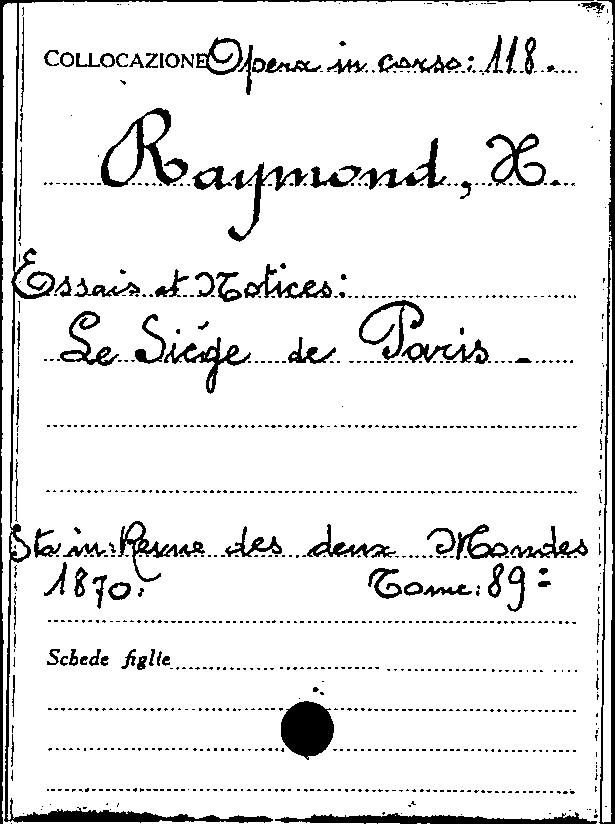 COLLOCAZIONE Opera in corso: 118.
Raymond, X.
Essais et Notices:
Le Siége de Paris.
Sta in: Revue des deux Mondes
1870. Tome: 89=
Schede figlie